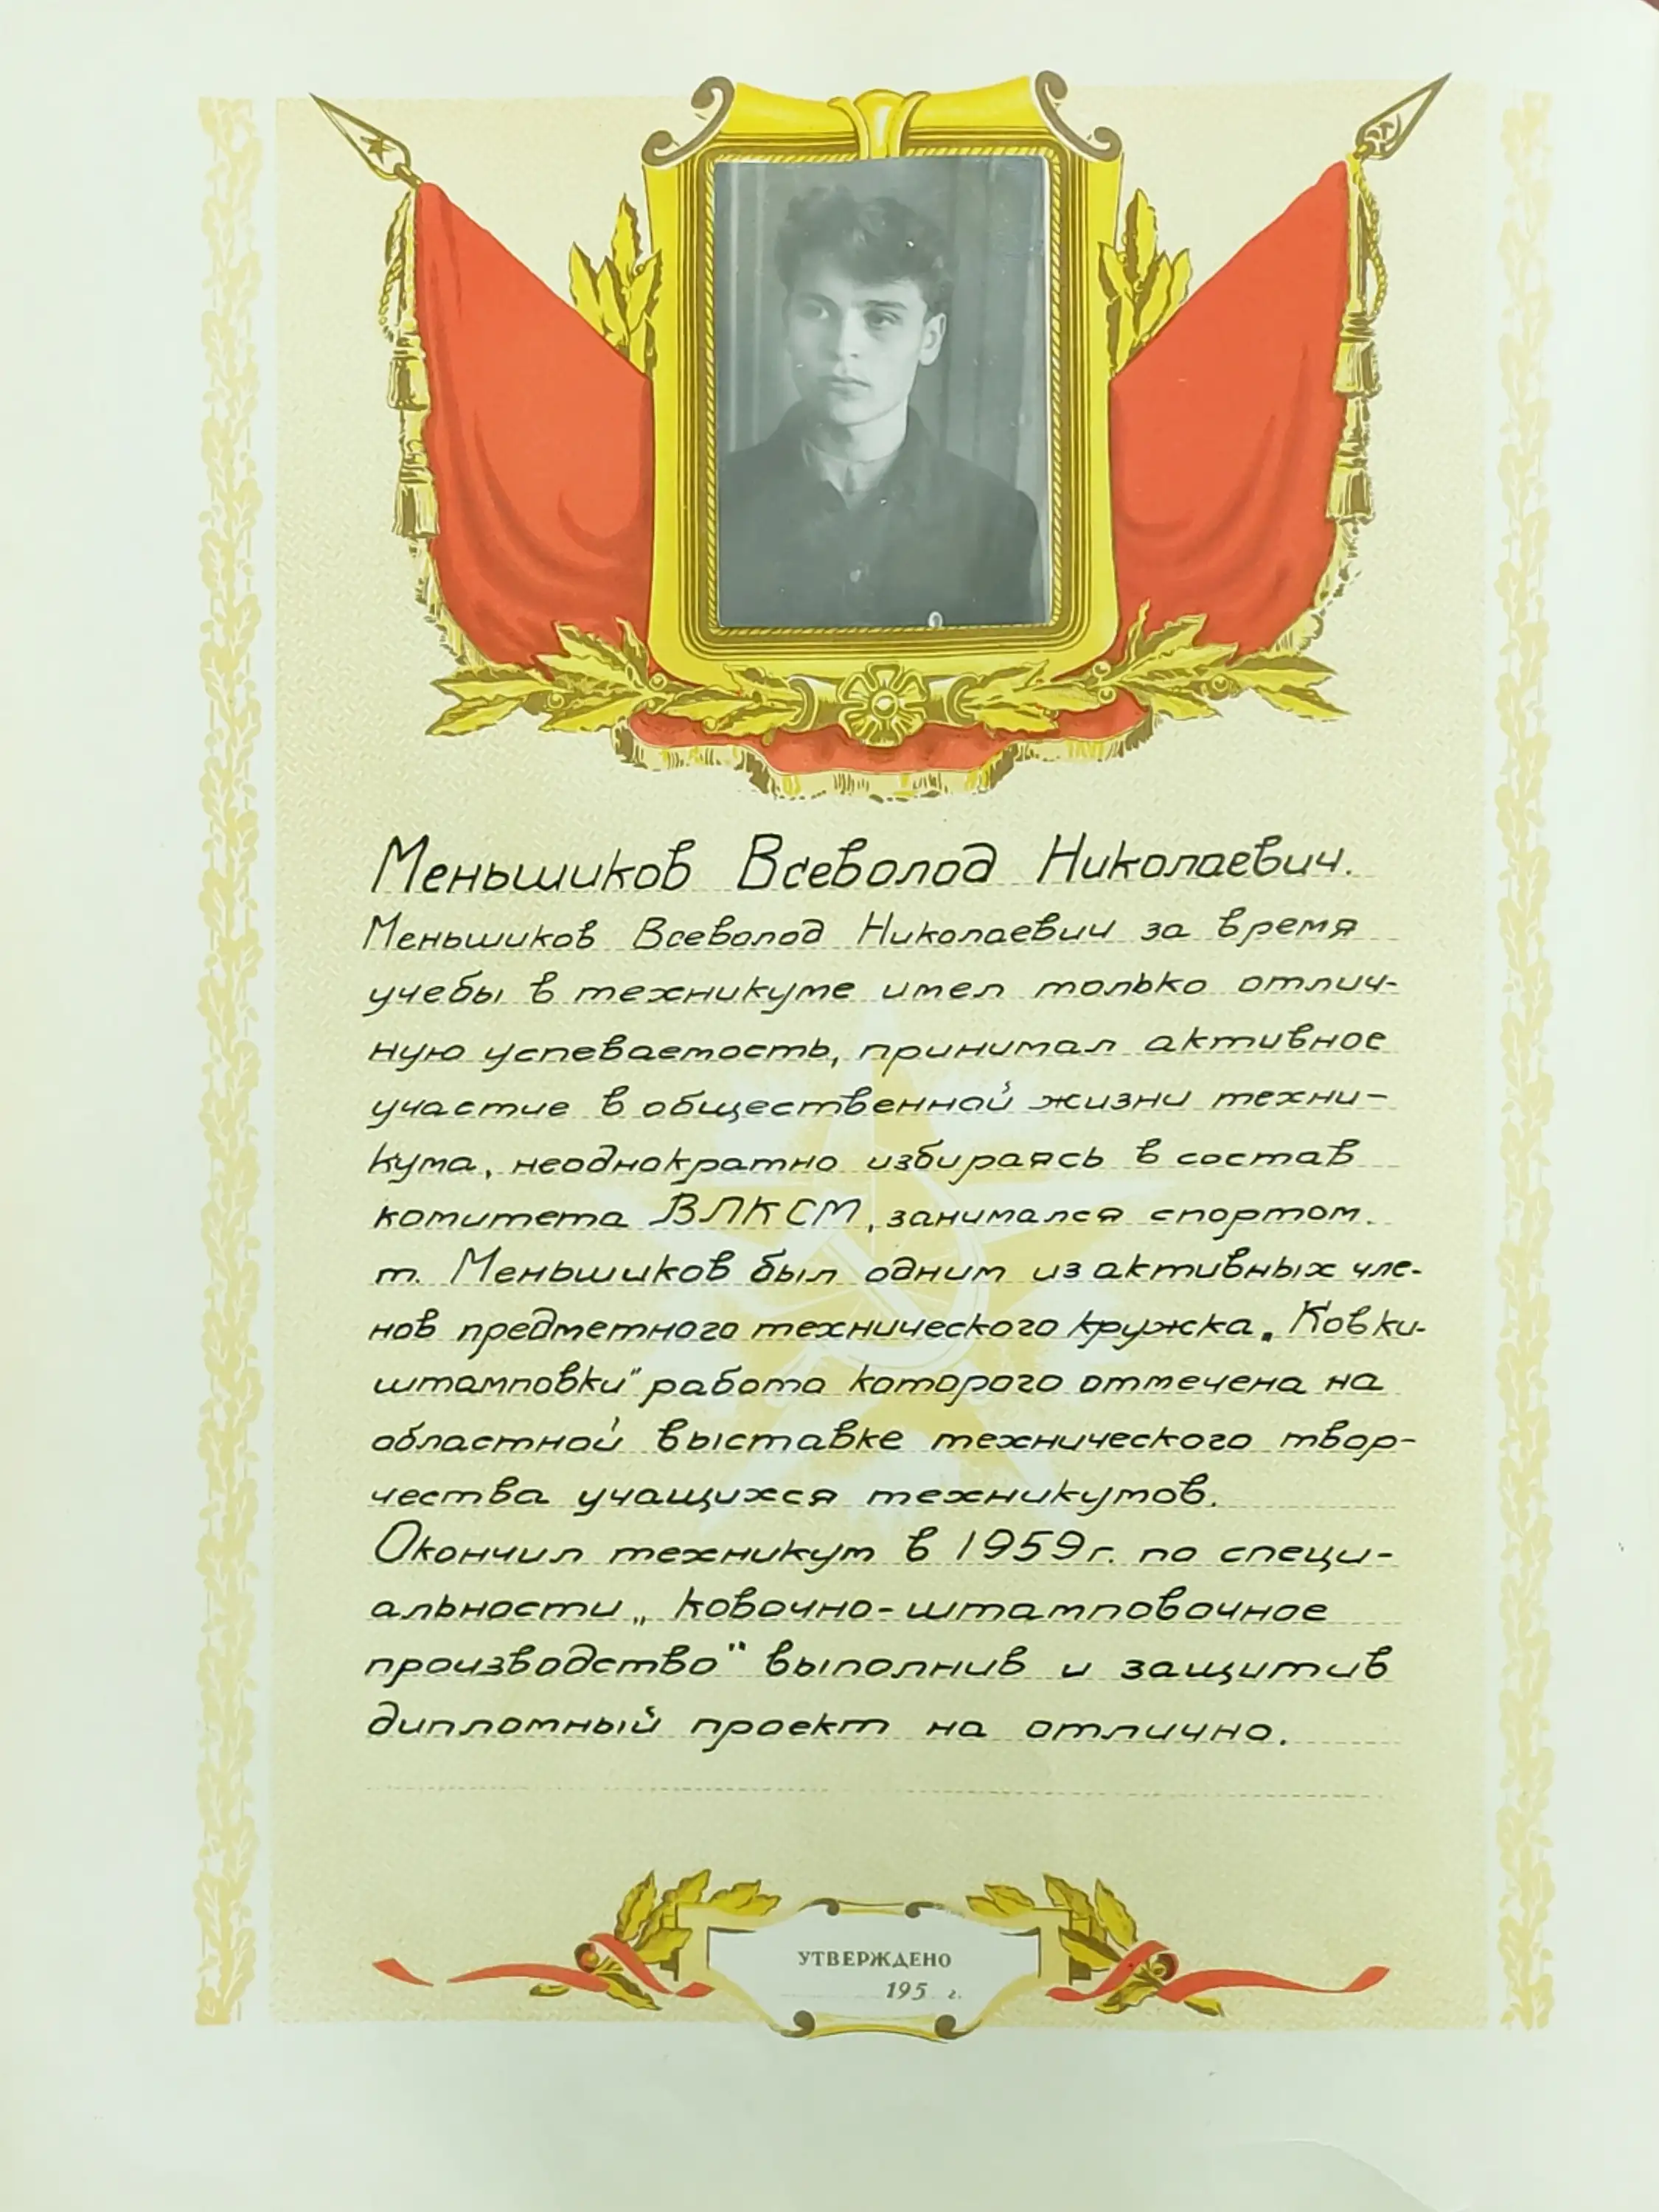 Меньшиков Всеволод Николаевич.
Меньшиков Всеволод Николаевич за время
учебы в техникуме имел только отлич-
ную успеваемость, принимал активное
участие в общественной жизни техни-
кума, неоднократно избираясь в состав
комитета ВЛКСМ, занимался спортом.
т. Меньшиков был одним из активных чле-
нов предметного технического кружка „Ковки-
штамповки" работа которого отмечена на
областной выставке технического твор-
чества учащихся техникумов.
Окончил техникум в 1959г. по специ-
альности „Ковочно-штамповочное
производство" выполнив и защитив
дипломный проект на отлично.
УТВЕРЖДЕНО
195 г.